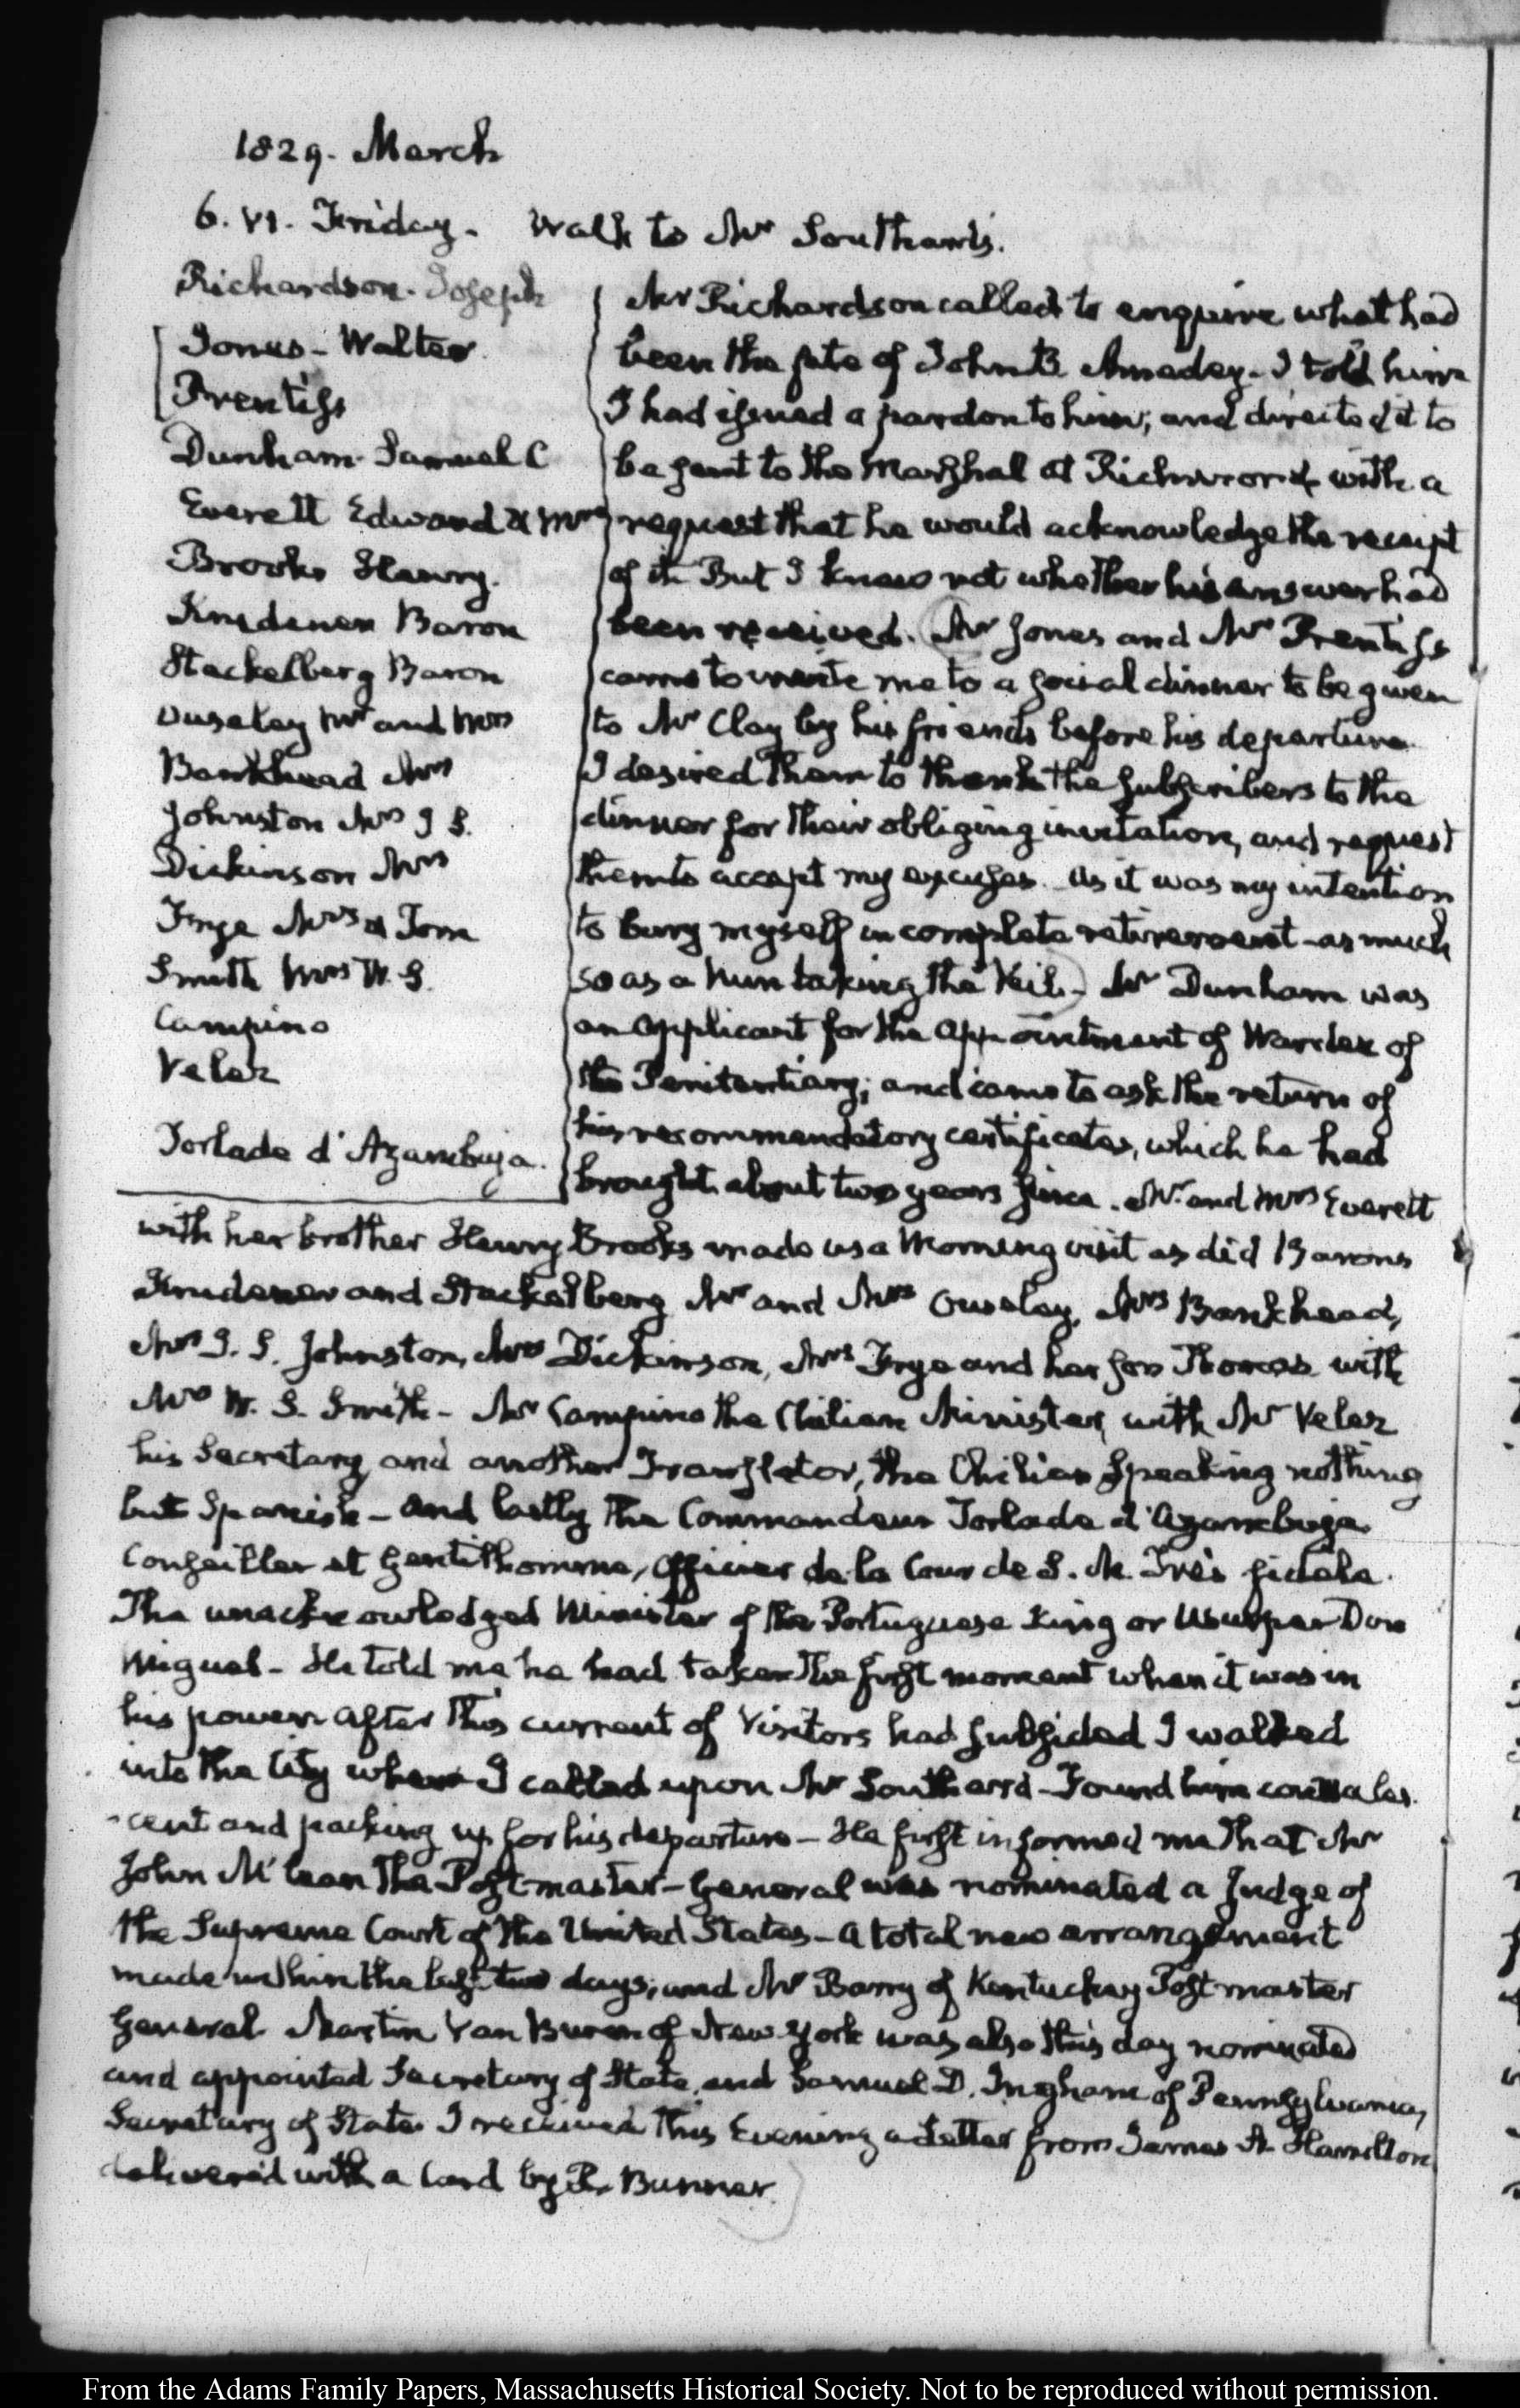 1829. March
6. VI. Friday. Walk to Mr Southard's.
Richardson. Joseph
Jones - Walter
Prentiss
Dunham. Samuel C
Everett Edward & Mrs
Brooks Henry.
Krudener Baron
Stackelberg Baron
Ouseley Mr and Mrs
Bankhead Mrs
Johnston Mrs J S.
Dickinson Mrs
Inge Mrs & Tom
Smith Mrs W. S.
Campino
Velez
Torlade d'Azambuja.
Mr Richardson called to enquire what had
been the fate of John B. Amadey - I told him
I had issued a pardon to him; and directed it to
be sent to the Marshal at Richmond with a
request that he would acknowledge the receipt
of it. But I knew not whether his answer had
been received. Mr Jones and Mr Prentiss
came to invite me to a social dinner to be given
to Mr Clay by his friends before his departure.
I desired them to thank the subscribers to the
dinner for their obliging invitation, and request
them to accept my excuses. As it was my intention
to bury myself in complete retirement - as much
so as a Nun taking the Veil - Mr Dunham was
an applicant for the appointment of Warden of
the Penitentiary; and came to ask the return of
his recommendatory certificates, which he had
brought about two years since. Mr. and Mrs Everett
with her brother Henry Brooks made us a Morning visit as did Barons
Krudener and Stackelberg Mr and Mrs Ouseley, Mrs Bankhead,
Mrs J. S. Johnston, Mrs Dickinson, Mrs Inge and her son Thomas with
Mrs W. S. Smith - Mr Campino the Chilian Minister, with Mr Velez
his Secretary and another Translator, the Chilian speaking nothing
but Spanish - and lastly the Commandeur Torlade d'Azambuja
Conseiller et Gentilhomme, Officier de la Cour de S. M. Très fidele.
The unacknowledged Minister of the Portuguese King or Usurper Don
Miguel - He told me he had taken the first moment when it was in
his power. After this current of Visitors had subsided I walked
into the City where I called upon Mr Southard - Found him convales
-cent and packing up for his departure - He first informed me that Mr
John McLean the Post-master-General was nominated a Judge of
the Supreme Court of the United States - A total new arrangement
made within the last two days; and Mr Barry of Kentucky Post-master
General. Martin Van Buren of New-York was also this day nominated
and appointed Secretary of State, and Samuel D. Ingham of Pennsylvania,
Secretary of State. I received this Evening a Letter from James A. Hamilton
delivered with a Card by R. Bunner
From the Adams Family Papers, Massachusetts Historical Society. Not to be reproduced without permission.